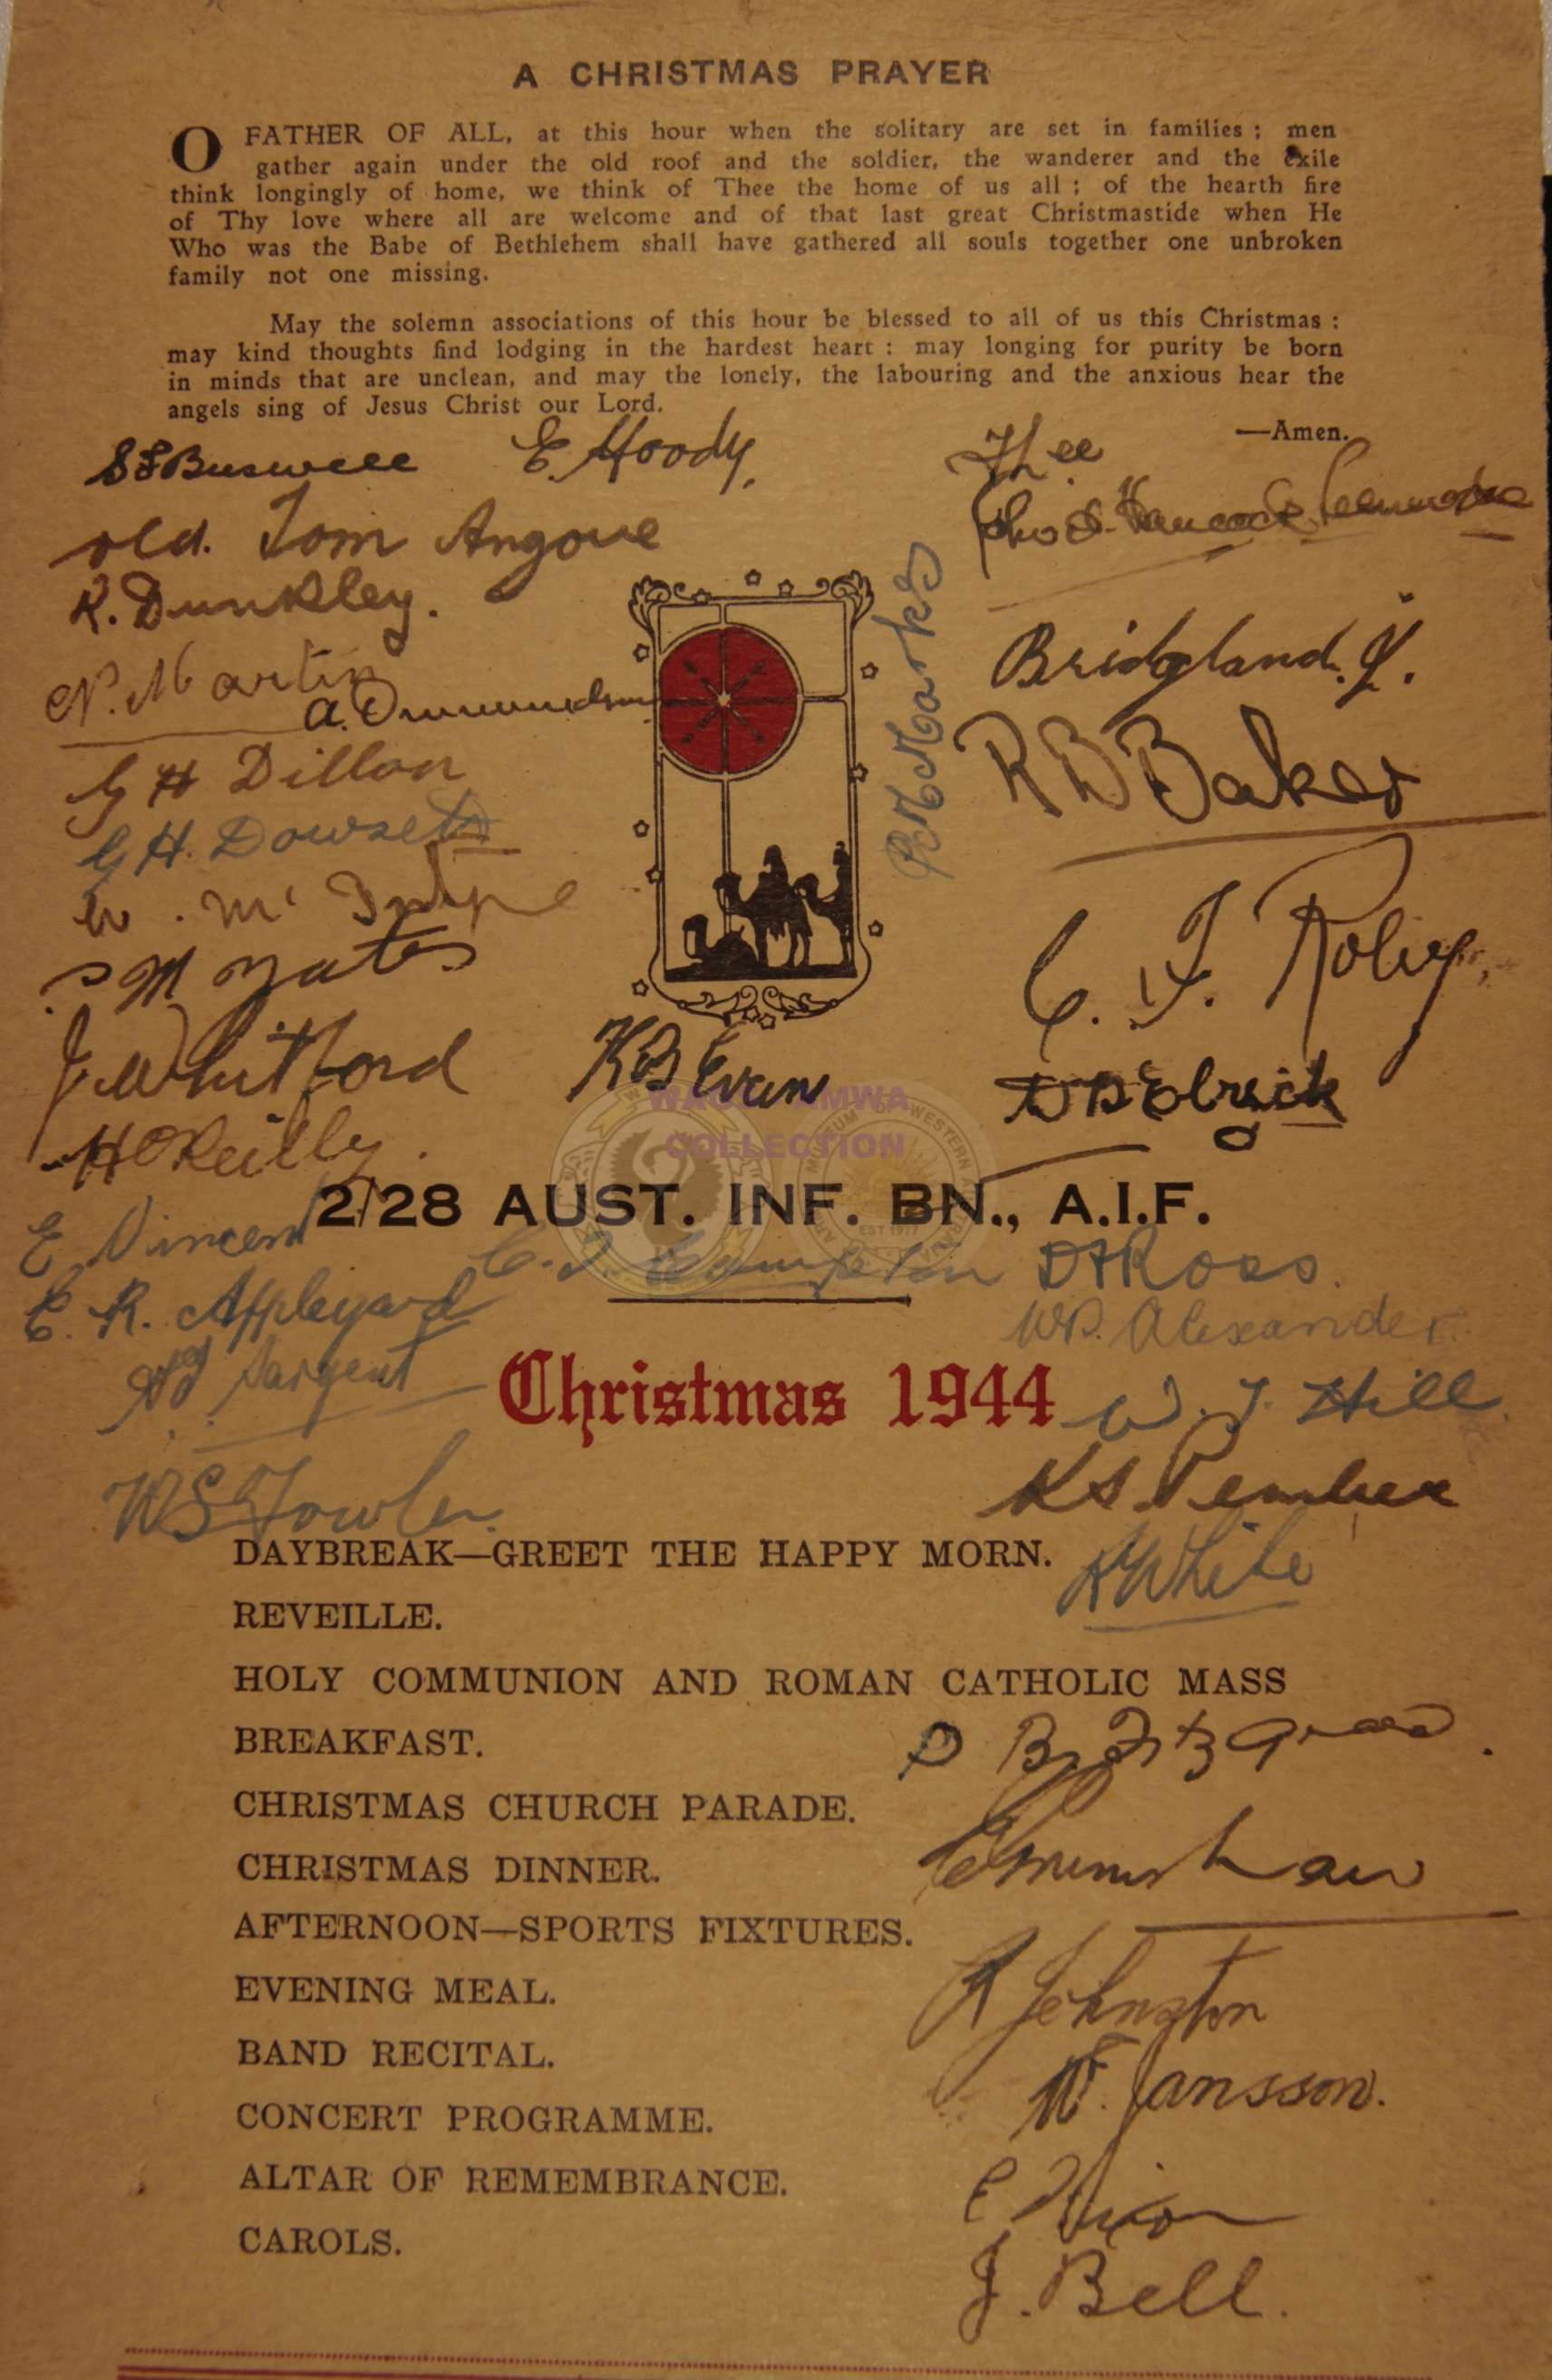 A CHRISTMAS PRAYER
O FATHER OF ALL, at this hour when the solitary are set in families ; men
gather again under the old roof and the soldier, the wanderer and the exile
think longingly of home, we think of Thee the home of us all ; of the hearth fire
of Thy love where all are welcome and of that last great Christmastide when He
Who was the Babe of Bethlehem shall have gathered all souls together one unbroken
family not one missing.
May the solemn associations of this hour be blessed to all of us this Christmas :
may kind thoughts find lodging in the hardest heart : may longing for purity be born
in minds that are unclean, and may the lonely, the labouring and the anxious hear the
angels sing of Jesus Christ our Lord.
—Amen.
S F Buswell
E. Moody,
old. Tom Angove
Hancock
K. Dunkley.
P M Marks
Bridgland. Y.
N. Martin
a. Ommundsen
R B Baker
G H Dillon
G H. Dowsett
W. Mc Intyre
S M Yates
C. F. Roby
J Whitford
K B Evans
H O'Reilly.
WAGS AMWA
COLLECTION
2/28 AUST. INF. BN., A.I.F.
E Vincent
D F Ross.
C. R. Appleyard
W P. Alexander.
Sargent
Christmas 1944
W. J. Hill
K S Pember
W S Fowler.
DAYBREAK—GREET THE HAPPY MORN.
White
REVEILLE.
HOLY COMMUNION AND ROMAN CATHOLIC MASS
BREAKFAST.
CHRISTMAS CHURCH PARADE.
CHRISTMAS DINNER.
AFTERNOON—SPORTS FIXTURES.
R Johnston
EVENING MEAL.
BAND RECITAL.
W. Jansson.
CONCERT PROGRAMME.
ALTAR OF REMEMBRANCE.
Nixon
CAROLS.
J. Bell.